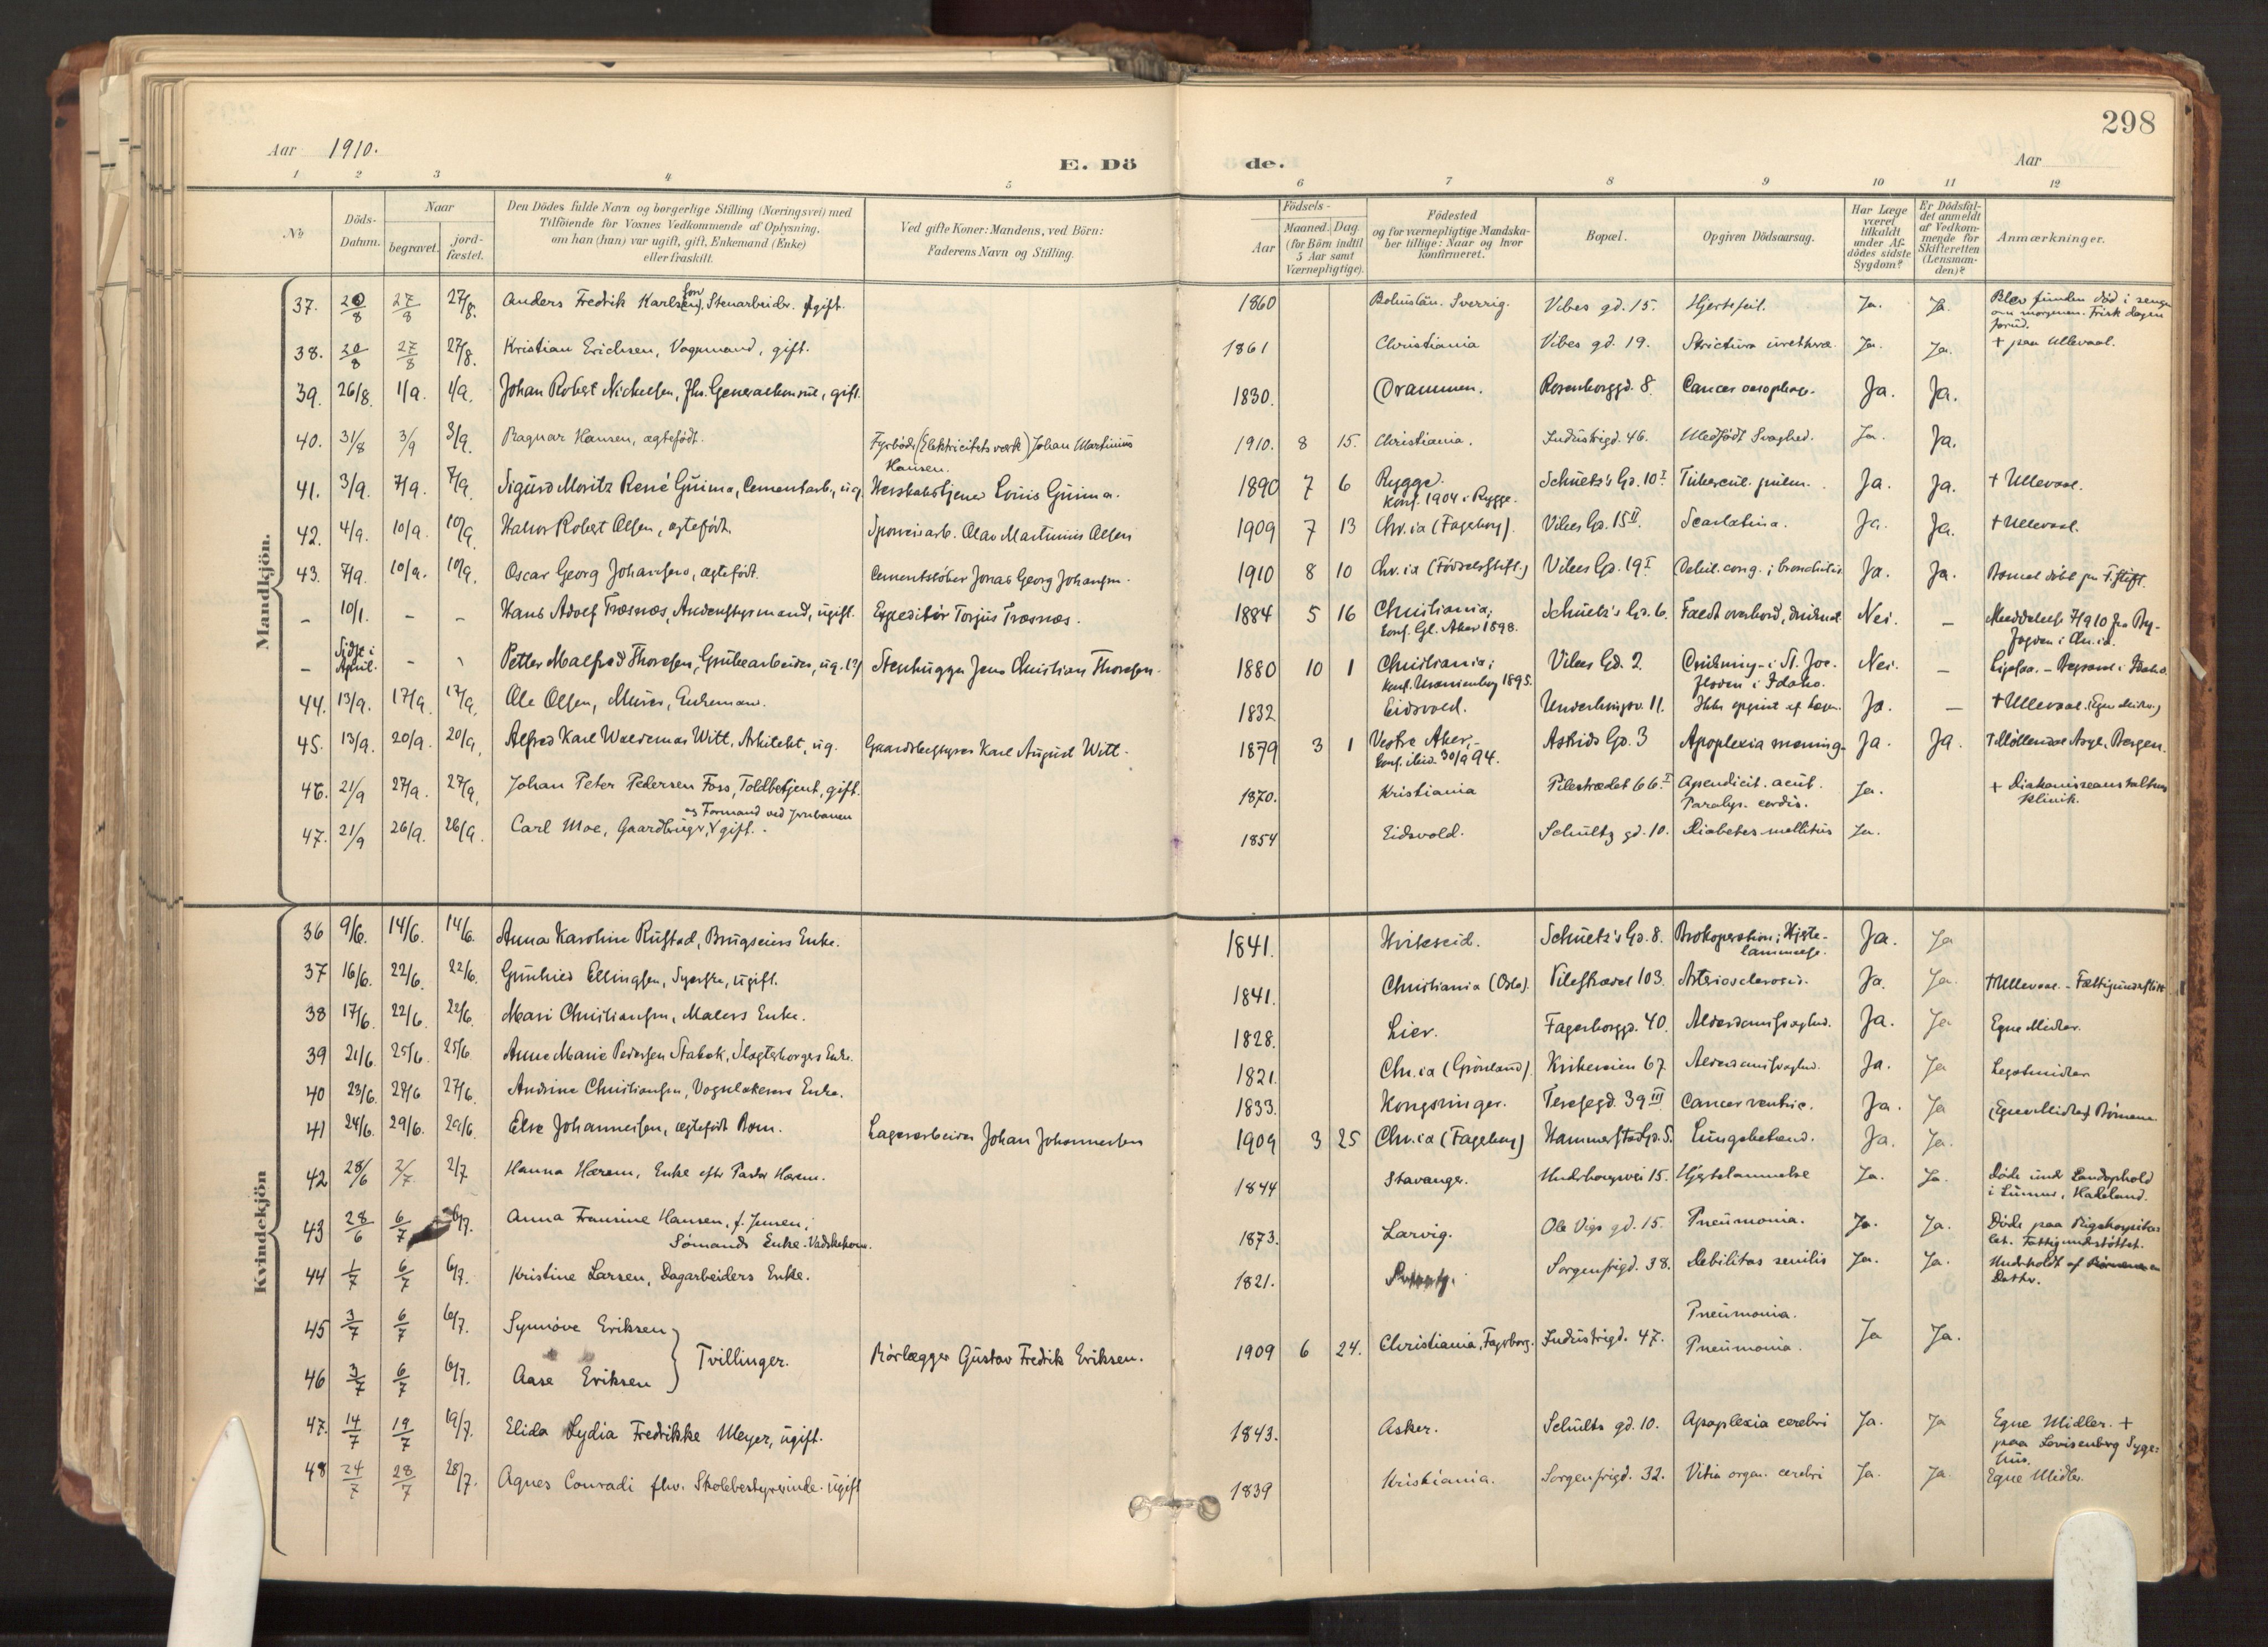 298
Aar 1910.
E. Dö de.
Aar
1 2 3 4 5 6 7 8 9 10 11 12
No
Döds-Datum.
Naar
begravet.
jord-fæstet.
Den Dödes fulde Navn og borgerlige Stilling (Næringsvei) med
Tilföiende for Voxnes Vedkommende af Oplysning,
om han (hun) var ugift, gift, Enkemand (Enke)
eller fraskilt.
Ved gifte Koner: Mandens, ved Börn:
Faderens Navn og Stilling.
Födsels-
Aar
Maaned. Dag.
(for Börn indtil
5 Aar samt
Værnepligtige).
Födested
og for værnepligtige Mandska-
ber tillige: Naar og hvor
konfirmeret.
Bopæl.
Opgiven Dödsaarsag.
Har Læge
været
tilkaldt
under Af-
dödes sidste
Sygdom?
Er Dödsfal-
det anmeldt
af Vedkom-
mende for
Skifteretten
(Lensman-
den)?
Anmærkninger.
Mandkjön.
37. 20/8 27/8 27/8. Anders Fredrik Karlsen, Stenarbeider. gift. 1860 Bohuslän. Sverrig. Vibes gd. 15. Hjertefeil. Ja. Ja. Blev funden död i sengen
om morgenen. Frisk dagen
forud.
38. 20/8 27/8 27/8. Kristian Erichsen, Vognmand, gift. 1861 Christiania Vibes gd. 19. Strictura urethræ. Ja. Ja. + paa Ullevaal.
39. 26/8. 1/9. 1/9. Johan Robert Nickelsen, fhv. Generalkonsul, gift. 1830. Drammen. Rosenborggd. 8. Cancer oesophag. Ja. Ja.
40. 31/8 3/9 3/9. Ragnar Hansen, ægtefödt. Fyrböder (Elektricitetsverk) Johan Martinius
Hansen. 1910. 8 15. Christiania. Industrigd. 46. Medfödt Svaghed. Ja. Ja.
41. 3/9. 7/9. 7/9. Sigurd Moritz René Guima, Cementarb., ug. Herskabstjener Louis Guima. 1890 7 6 Rygge.
Konf. 1904 i Rygge. Schultz's Gd. 10 I Tubercul. pulm. Ja. Ja. + Ullevaal.
42. 4/9. 10/9. 10/9. Halvor Robert Olsen, ægtefödt. Sporveisarb. Olav Martinius Olsen 1909 7 13 Chr.ia (Fagerborg). Vibes Gd. 15 II. Scarlatina. Ja. Ja. + Ullevaal.
43. 7/9. 10/9. 10/9. Oscar Georg Johansen, ægtefödt. Cementstöber Jonas Georg Johansen. 1910 8 10 Chr.ia (Födselsstift.) Vibes Gd. 19 I Debil. cong.; bronchitis Ja. Ja. Barnet döbt paa F.stift.
– 10/1. – – Hans Adolf Træsnæs, Andenstyrmand, ugift. Expeditör Torjus Træsnæs. 1884 5 16 Christiania;
Konf. Gl. Aker 1898. Schultz's Gd. 6. Faldt overbord, druknet. Nei. – Meddelelse 7/9 10 fra By-
fogden i Chr.ia.
– Sidst i
April. – – Petter Malfred Thoresen, Grubearbeider, ug. (?) Stenhugger Jens Christian Thoresen. 1880 10 1 Christiania;
Konf. Uranienborg 1895. Vibes Gd. 2. Drukning i St. Joe.
floden i Idaho. Nei. –
44. 13/9. 17/9. 17/9. Ole Olsen, Murer, Enkemand. 1832 Eidsvold. Underhaugsv. 11. Ikke opgivet af Lægen. Ja. – + Ullevaal. (Egne Midler.)
45. 13/9. 20/9. 20/9. Alfred Karl Waldemar Witt, Arkitekt, ug. Gaardsbestyrer Karl August Witt. 1879 3 1 Vestre Aker,
Konf. ibid. 30/9 94. Astrids Gd. 3 Apoplexia mening. Ja. Ja. + Möllendal Asyl, Bergen.
46. 21/9 27/9. 27/9. Johan Peter Pedersen Foss, Toldbetjent, gift. 1870. Kristiania Pilestrædet 66 I Apendicit. acut.
Paralys. cordis. Ja. + Diakonisseanstaltens
klinik.
47. 21/9 26/9. 26/9. Carl Moe, Gaardbruger, og Formand ved Jernbanen gift. 1854 Eidsvold. Schultz gd. 10. Diabetes mellitus Ja.
Kvindekjön
36 9/6. 14/6. 14/6. Anna Karoline Rustad, Brugseiers Enke. 1841. Hviteseid. Schultz's Gd. 8. Brokoperation; Hjerte-
lammelse. Ja. Ja
37 16/6. 22/6. 22/6. Gunhild Ellingsen, Syerske, ugift. 1841. Christiania (Oslo). Pilestrædet 103. Arteriosclerosis. Ja. Ja. + Ullevaal. – Fattigunderstött.
38 17/6. 22/6. 22/6. Mari Christiansen, Malers Enke. 1828. Lier. Fagerborggd. 40. Alderdomssvaghed. Ja. Ja Egne Midler.
39 21/6. 25/6. 25/6. Anne Marie Pedersen Stabæk, Slagterborgers Enke. 1821. Chr.ia (Grönland). Kirkeveien 67. Alderdomssvaghed. Ja. Ja Legatmidler
40 23/6. 27/6 27/6. Andrine Christiansen, Vognlakerers Enke. 1833. Kongsvinger. Teresegd. 39 III Cancer ventric. Ja. Ja (Egne Midler) Börnene
41 24/6. 29/6. 29/6. Else Johannesen, ægtefödt Barn. Lagerarbeider Johan Johannesen 1909 3 25 Chr.ia (Fagerborg) Hammerstadgd. 5. Lungebetænd. Ja. Ja.
42 28/6 2/7 2/7 Hanna Hærem, Enke efter Pastor Hærem. 1844 Stavanger. Underhaugsvei 15. Hjertelammelse Ja. Ja. Döde under Landophold
i Lunner, Hadeland.
43 28/6 6/7 6/7. Anna Fransine Hansen, f. Jensen;
Sömands Enke. Vadskekone. 1873. Larvig. Ole Vigs gd. 15. Pneumonia. Ja. Ja. Döde paa Rigshospita-
let. Fattigunderstöttet.
44 1/7 6/7 6/7. Kristine Larsen, Dagarbeiders Enke. 1821. Sorgenfrigd. 38. Debilitas senilis Ja. Ja. Underholdt af Börnene en
Datter.
45 3/7 6/7 6/7. Synnöve Eriksen Pneumonia.
Tvillinger. Rörlægger Gustav Fredrik Eriksen. 1909 6 24. Christiania, Fagerborg. Industrigd. 47. Ja Ja.
46 3/7 6/7 6/7. Aase Eriksen Pneumonia.
47. 14/7 19/7 19/7. Elida Lydia Fredrikke Meyer, ugift. 1843. Asker. Schultz gd. 10. Apoplexia cerebri Ja. Ja Egne Midler. +
paa Lovisenberg Syge-
hus.
48 24/7 28/7 28/7. Agnes Conradi fhv. Skolebestyrerinde. ugift 1839 Kristiania. Sorgenfrigd. 32. Vitia organ. cerebri Ja. Ja. Egne Midler.